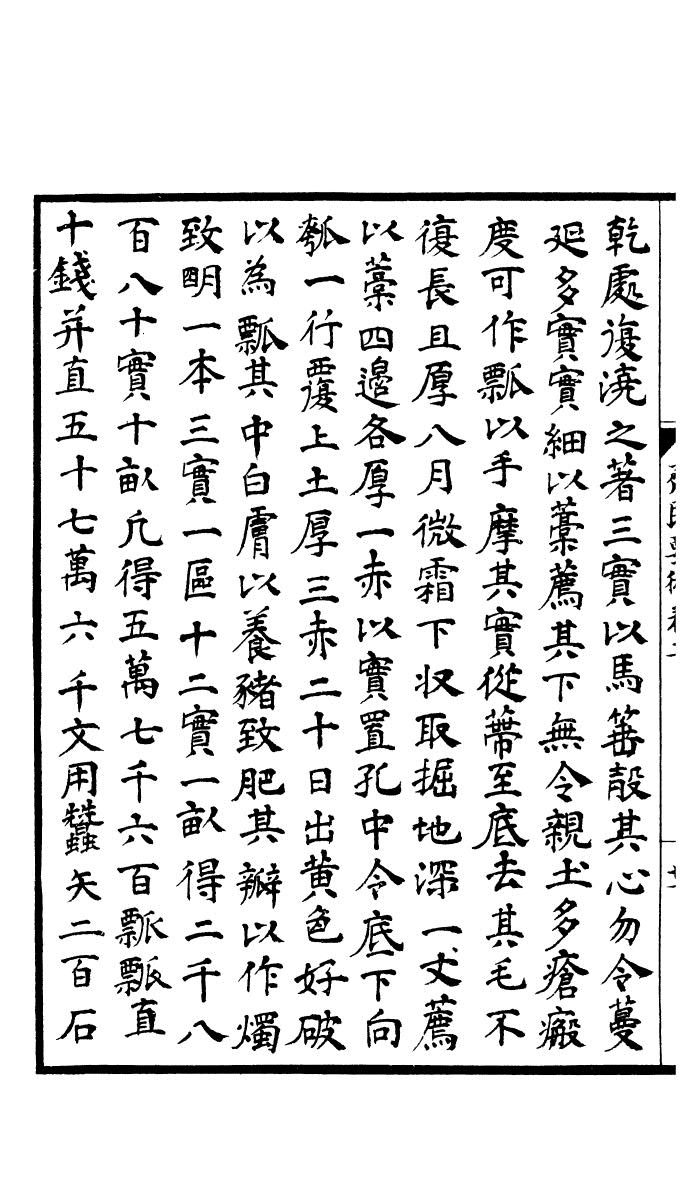 乾處復澆之著三實以馬箠㱿其心勿令蔓
延多實實細以藁薦其下無令親土多瘡瘢
度可作瓢以手摩其實從蔕至底去其毛不
復長且厚八月微霜下收取掘地深一丈薦
以藁四邉各厚一赤以實置孔中令底下向
瓠一行覆上土厚三赤二十日出黄色好破
以為瓢其中白膚以養豬致肥其瓣以作燭
致明一本三實一區十二實一畝得二千八
百八十實十畝凡得五萬七千六百瓢瓢直
十錢并直五十七萬六千文用蠶矢二百石